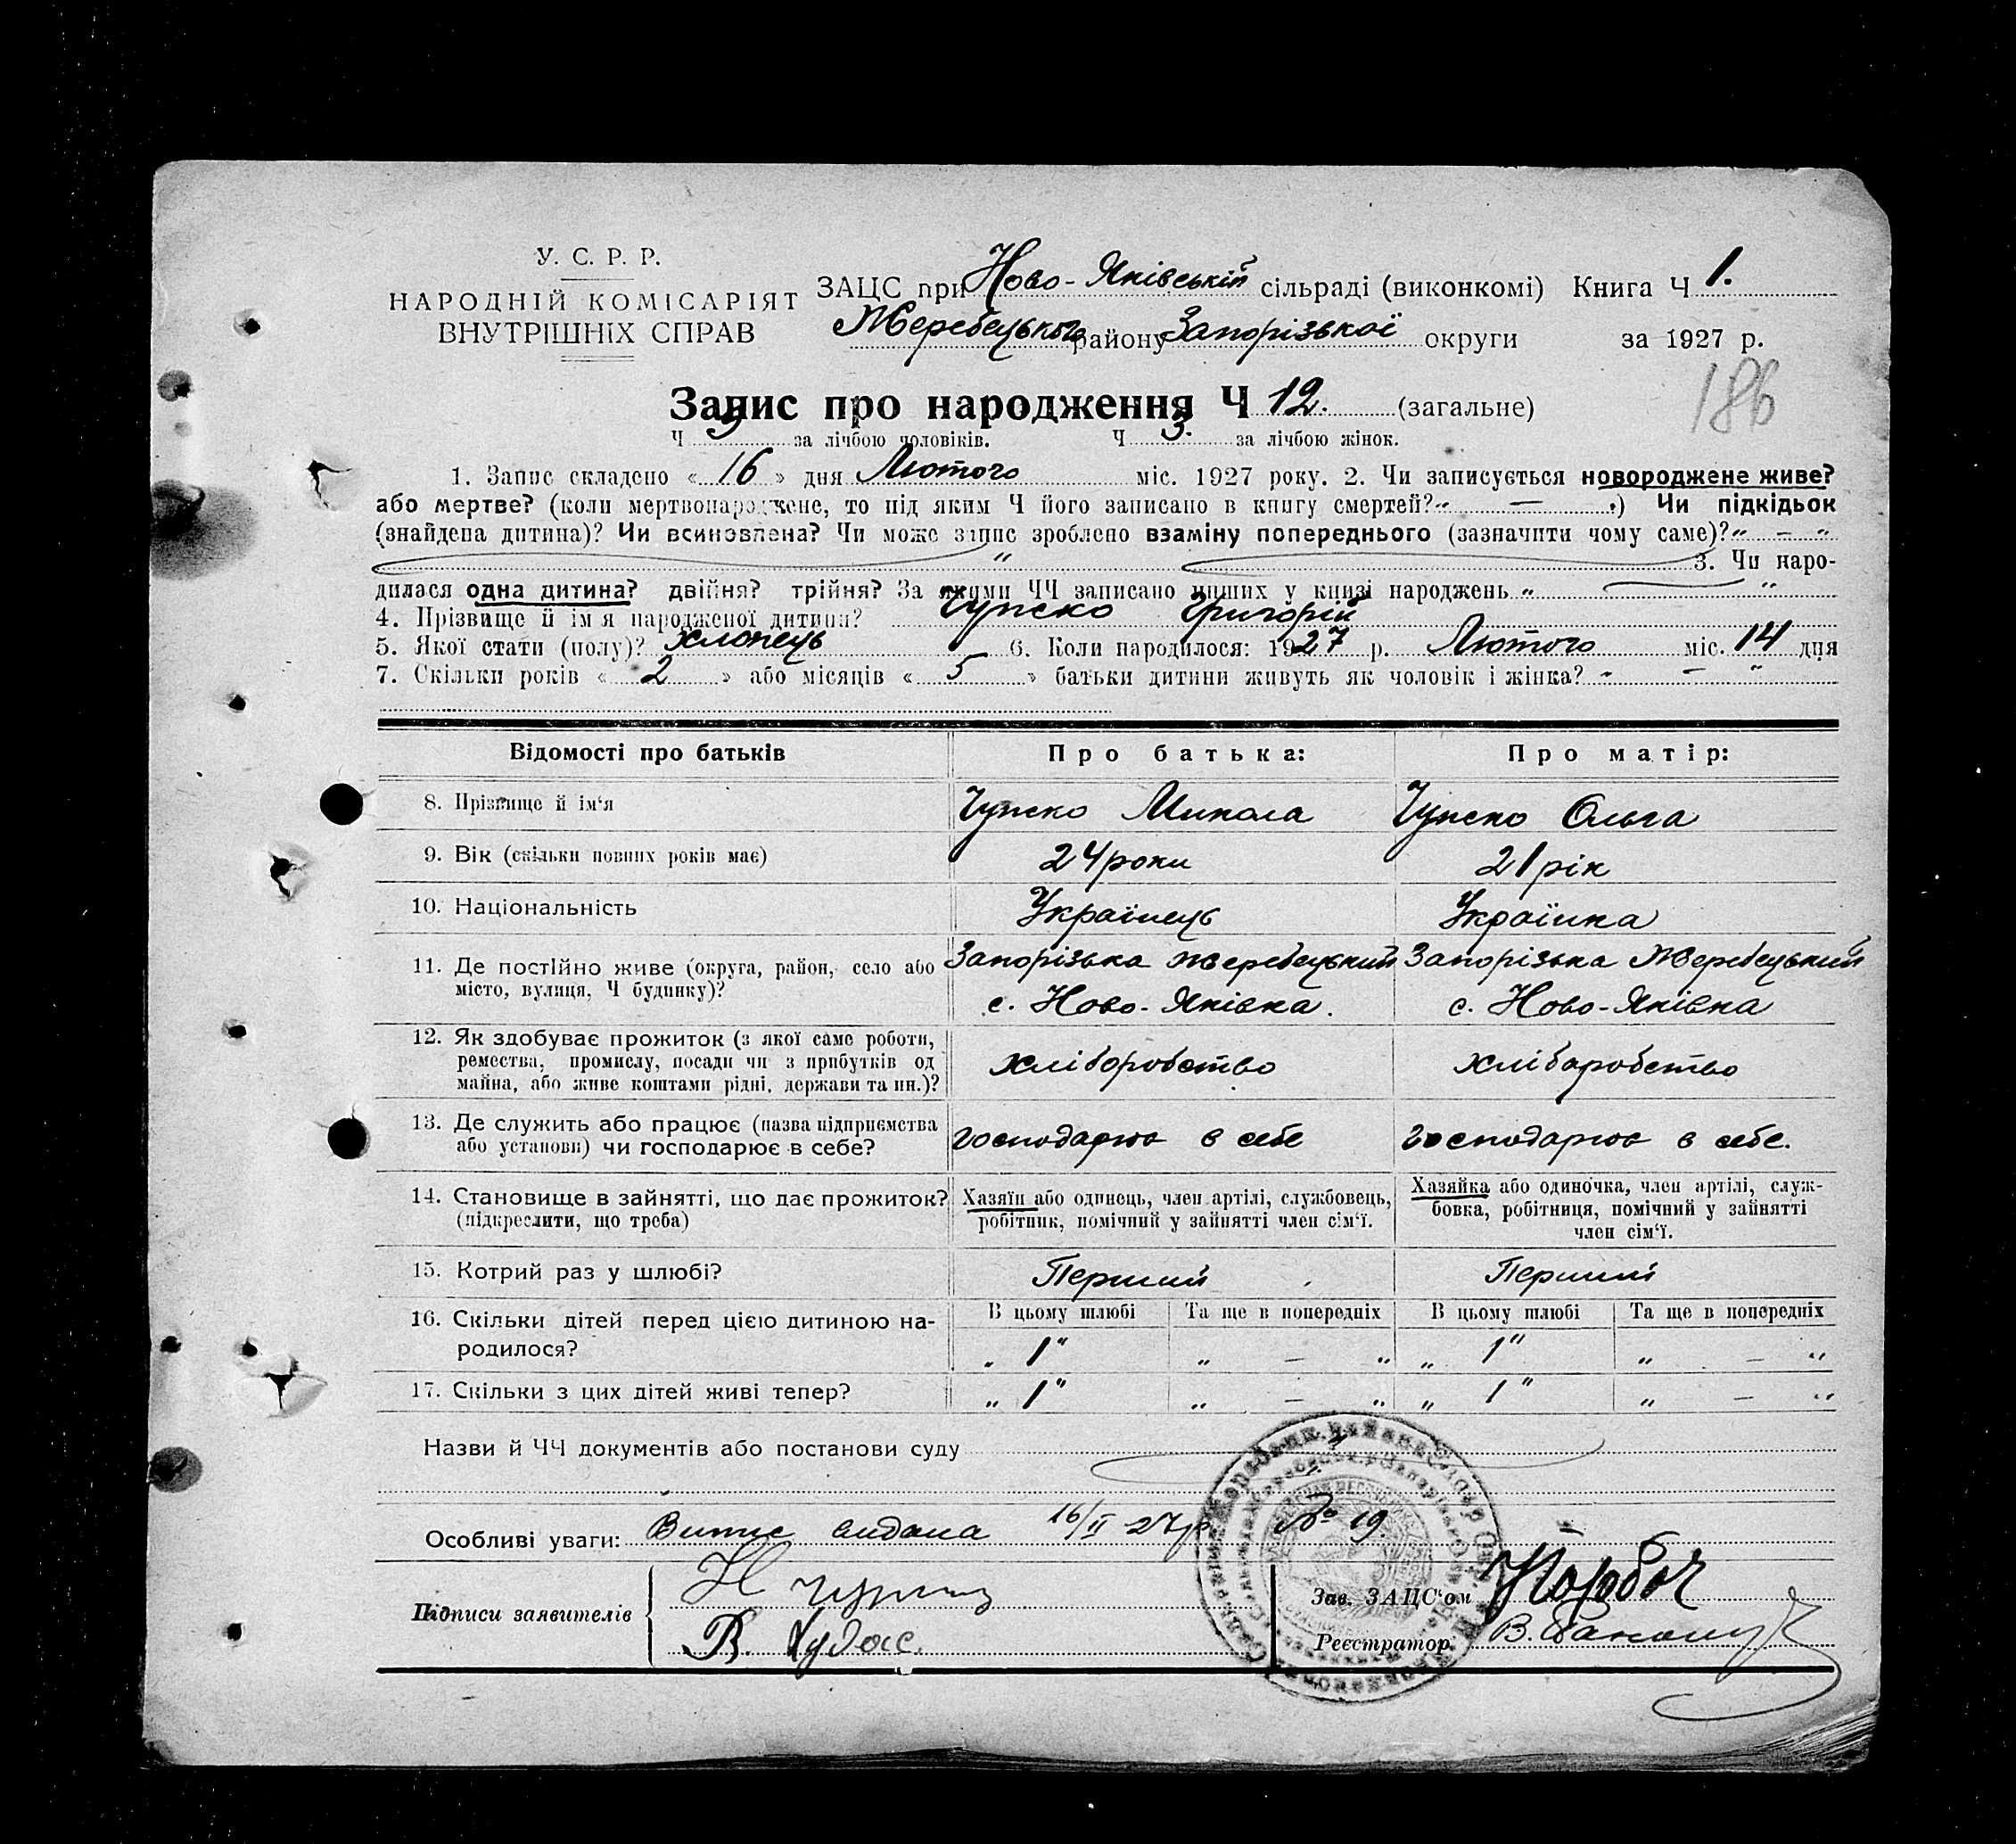 У. С. Р. Р.
НАРОДНІЙ КОМІСАРІЯТ
ВНУТРІШНІХ СПРАВ
ЗАЦС при Ново-Яківській сільраді (виконкомі) Книга Ч 1.
Жеребецького району Запорізької округи за 1927 р.
186
Запис про народження Ч 12. (загальне)
Ч 9 за лічбою чоловіків. Ч 3. за лічбою жінок.
1. Запис складено « 16 » дня Лютого міс. 1927 року. 2. Чи записується новороджене живе?
або мертве? (коли мертвонароджене, то під яким Ч його записано в книгу смертей? „ — .) Чи підкідьок
(знайдена дитина)? Чи всиновлена? Чи може запис зроблено взаміну попереднього (зазначити чому саме)? „ — "
" 3. Чи наро-
дилася одна дитина? двійня? трійня? За якими ЧЧ записано инших у книзі народжень „ "
4. Прізвище й ім'я народженої дитини? Чупско Григорій
5. Якої стати (полу)? хлопець 6. Коли народилося: 1927 р. Лютого міс. 14 дня
7. Скільки років « 2 » або місяців « 5 » батьки дитини живуть як чоловік і жінка? - — "
Відомості про батьків Про батька: Про матір:
8. Прізвище й ім'я Чупско Микола Чупско Ольга
9. Вік (скільки повних років має) 24 роки 21 рік
10. Національність Українець Українка
11. Де постійно живе (округа, район, село або Запорізька Жеребецький Запорізька Жеребецький
місто, вулиця, Ч будинку)? с. Ново-Яківка. с. Ново-Яківка
12. Як здобуває прожиток (з якої саме роботи,
ремества, промислу, посади чи з прибутків од хліборобство хліборобство
майна, або живе коштами рідні, держави та ин.)?
13. Де служить або працює (назва підприємства
або установи) чи господарює в себе? господарює в себе господарює в себе.
14. Становище в зайнятті, що дає прожиток? Хазяїн або одинець, член артілі, службовець, Хазяйка або одиночка, член артілі, служ-
(підкреслити, що треба) робітник, помічний у зайнятті член сім'ї. бовка, робітниця, помічний у зайнятті
член сім'ї.
15. Котрий раз у шлюбі? Перший Перший
16. Скільки дітей перед цією дитиною на- В цьому шлюбі Та ще в попередніх В цьому шлюбі Та ще в попередніх
родилося? „ 1" „ — „ „ 1" „ — „
17. Скільки з цих дітей живі тепер? „ 1" „ — „ „ 1" „ — „
Назви й ЧЧ документів або постанови суду
Особливі уваги: Витис видана 16/II 27р № 19.
Підписи заявителів
Зав. ЗАЦС'ом
Реєстратор